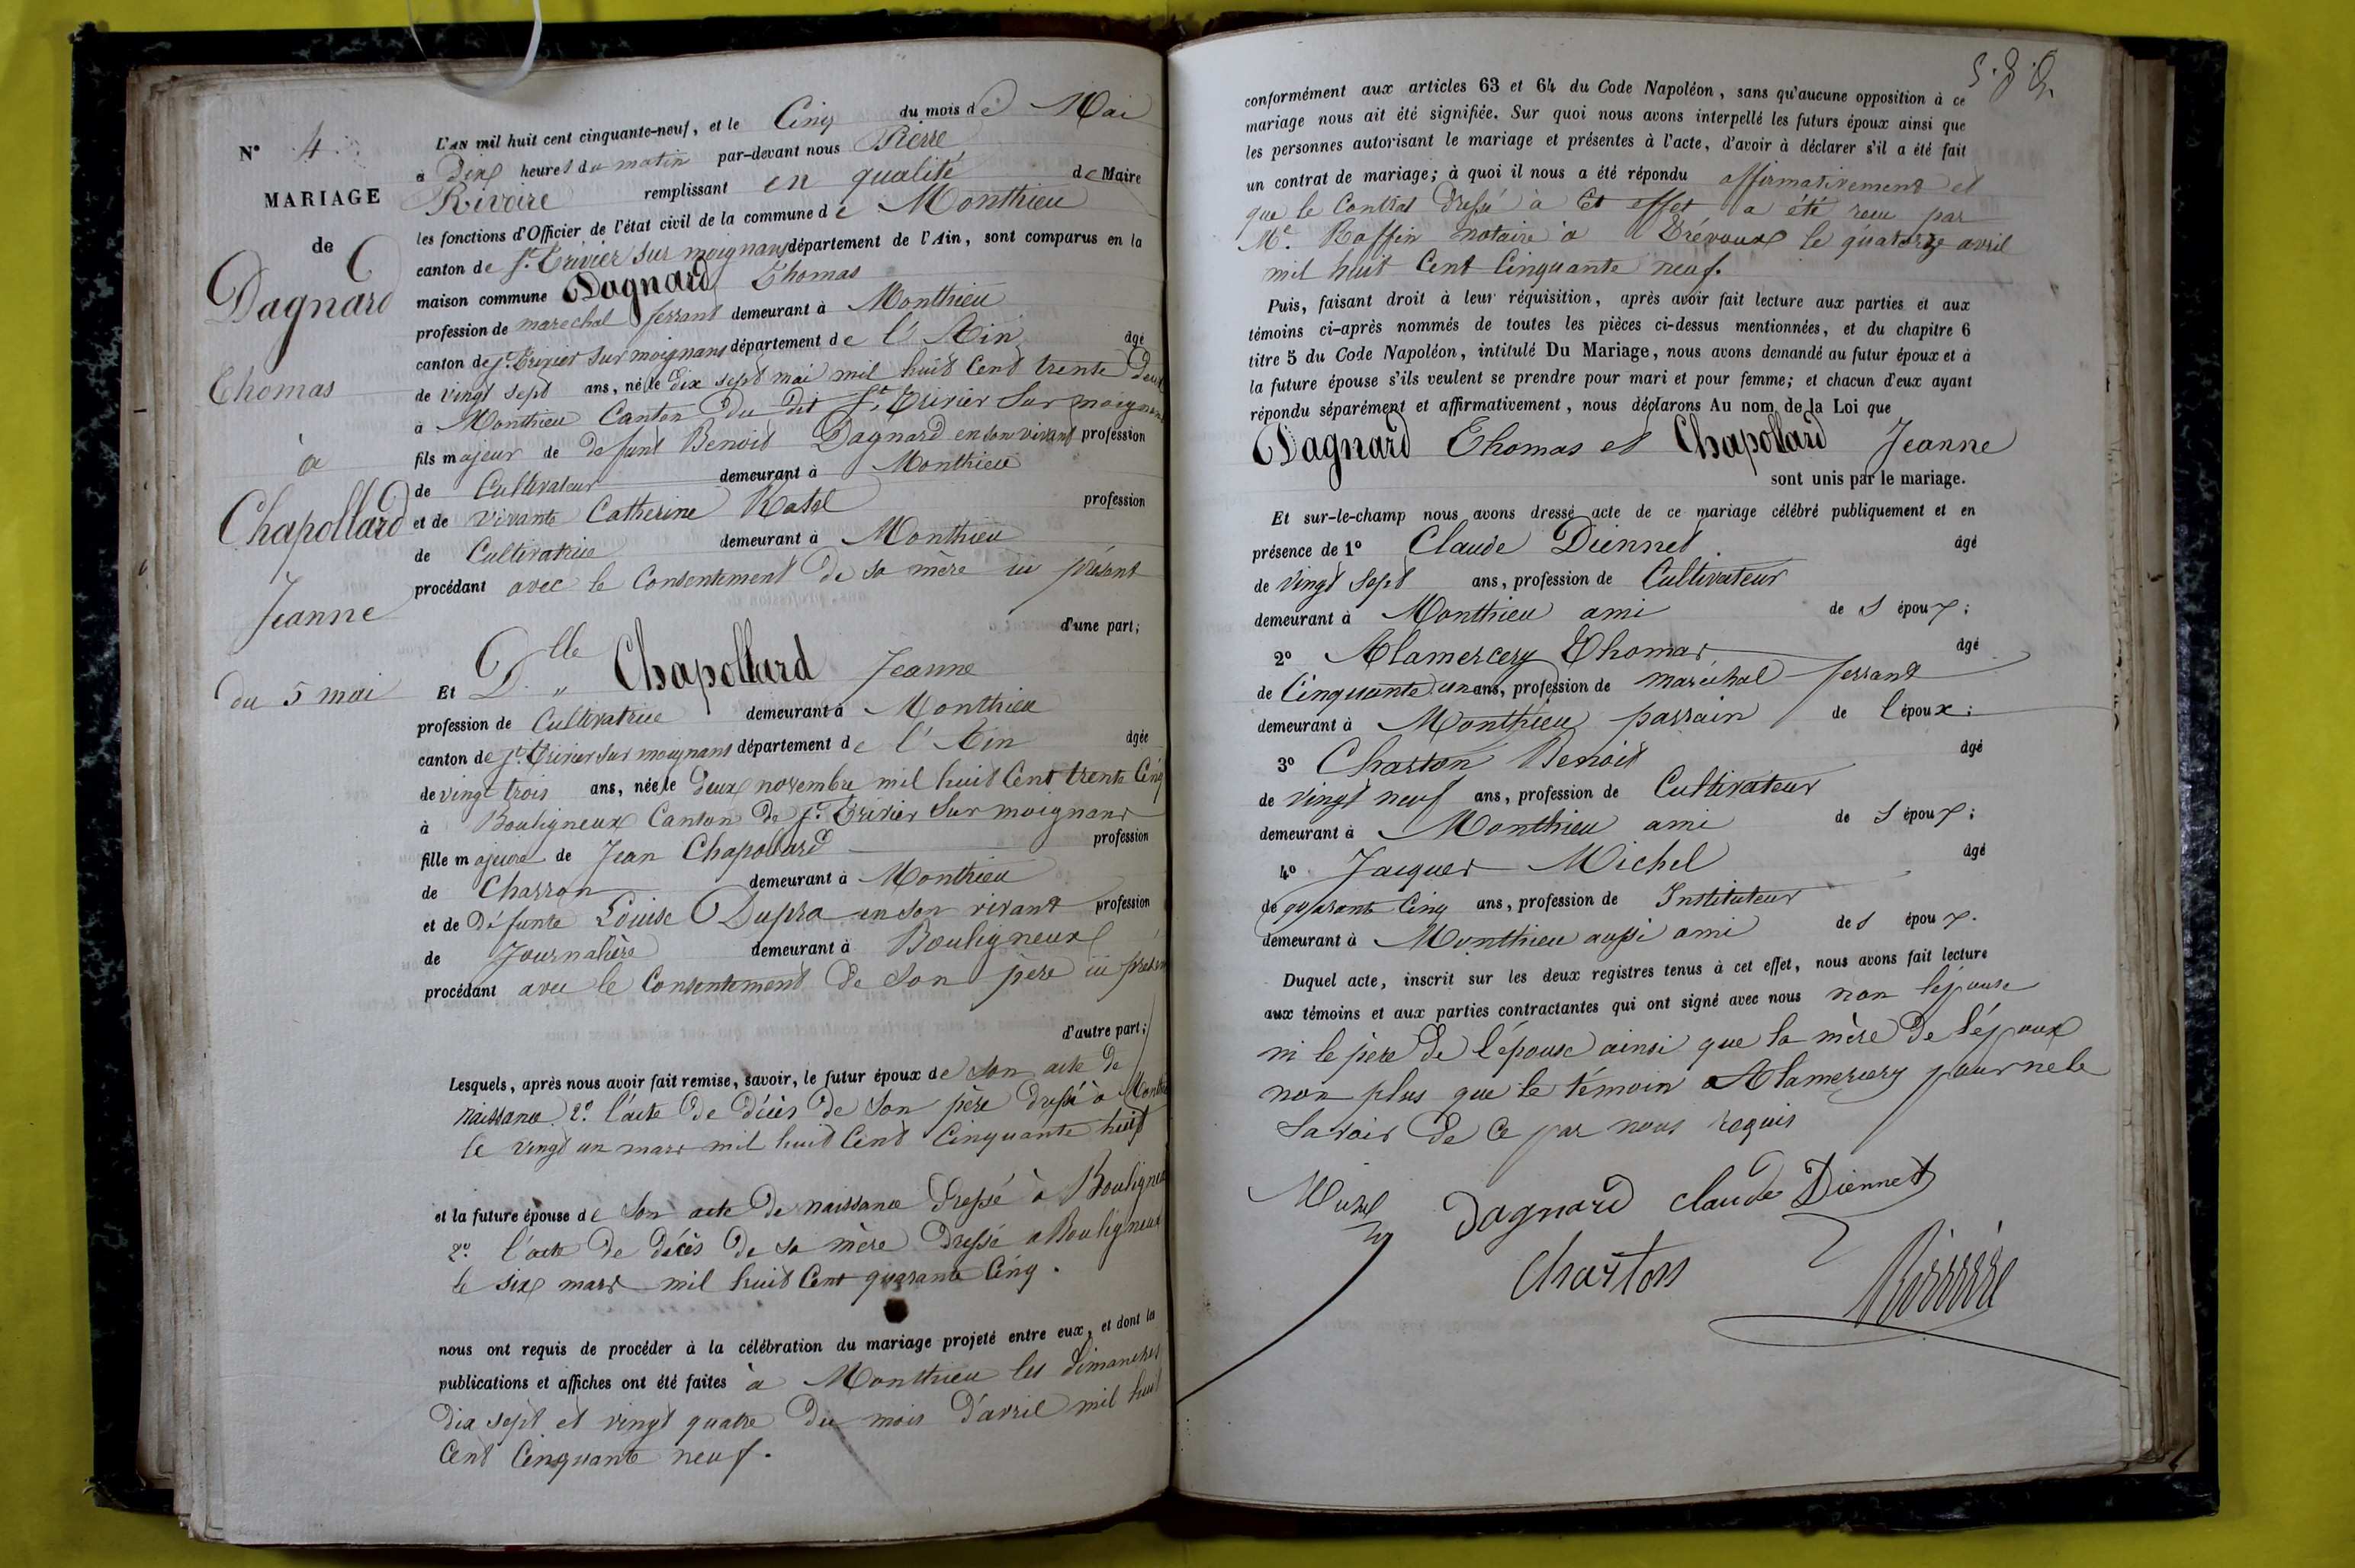 N° 4
MARIAGE
de
Dagnard
Thomas
à
Chapollard
Jeanne
du 5 mai
L'AN mil huit cent cinquante-neuf, et le Cinq du mois de Mai
à Dix heures du matin par-devant nous Pierre
Rivoire remplissant en qualité de Maire
les fonctions d'Officier de l'état civil de la commune de Monthieu
canton de St. Trivier sur moignans département de l'Ain, sont comparus en la
maison commune Dagnard Thomas
profession de marechal ferrant demeurant à Monthieu
canton de St. Trivier sur moignans département de l'Ain âgé
de vingt sept ans, né le dix sept mai mil huit Cent trente deux
à Monthieu Canton du dit St. Trivier sur moignans
fils majeur de defunt Benoit Dagnard en son vivant profession
de Cultivateur demeurant à Monthieu
et de vivante Catherine profession
de Cultivatrice demeurant à Monthieu
procédant avec le Consentement de sa mère ici présent
d'une part;
Et Dlle Chapollard Jeanne
profession de Cultivatrice demeurant à Monthieu
canton de St. Trivier sur moignans département de l'Ain âgée
de vingt trois ans, née le deux novembre mil huit Cent trente Cinq
à Bouligneux Canton de St. Trivier Sur moignans
fille majeure de Jean Chapollard profession
de Charron demeurant à Monthieu
et de défunte Louise Dupra en son vivant profession
de Journalière demeurant à Bouligneux
procédant avec le Consentement de Son père ici présen
d'autre part;
Lesquels, après nous avoir fait remise, savoir, le futur époux de Son acte de
naissance 2° l'acte de décès de Son père dressé à Monthie
le vingt un mars mil huit Cent Cinquante huit
et la future épouse de Son acte de naissance dressé à Bouligneux
2° l'acte de décès de sa mère dressé a Bouligneux
le six mars mil huit Cent quarante Cinq.
nous ont requis de procéder à la célébration du mariage projeté entre eux, et dont la
publications et affiches ont été faites à Monthieu les dimanches
dix sept et vingt quatre du mois d'avril mil huit
Cent Cinquante neuf.
conformément aux articles 63 et 64 du Code Napoléon, sans qu'aucune opposition à ce
mariage nous ait été signifiée. Sur quoi nous avons interpellé les futurs époux ainsi que
les personnes autorisant le mariage et présentes à l'acte, d'avoir à déclarer s'il a été fait
un contrat de mariage; à quoi il nous a été répondu affirmativement et
que le Contrat dressé à Cet effet a été reçu par
Me. Raffin notaire à Trévoux le quatorze avril
mil huit Cent Cinquante neuf.
Puis, faisant droit à leur réquisition, après avoir fait lecture aux parties et aux
témoins ci-après nommés de toutes les pièces ci-dessus mentionnées, et du chapitre 6
titre 5 du Code Napoléon, intitulé Du Mariage, nous avons demandé au futur époux et à
la future épouse s'ils veulent se prendre pour mari et pour femme; et chacun d'eux ayant
répondu séparément et affirmativement, nous déclarons Au nom de la Loi que
Dagnard Thomas et Chapollard Jeanne
sont unis par le mariage.
Et sur-le-champ nous avons dressé acte de ce mariage célébré publiquement et en
présence de 1° Claude Diennet âgé
de vingt Sept ans, profession de Cultivateur
demeurant à Monthieu ami de s époux;
2° Alamercery Thomas âgé
de Cinquante un ans, profession de maréchal ferrant
demeurant à Monthieu parrain de l'époux;
3° Charton Benoit âgé
de vingt neuf ans, profession de Cultivateur
demeurant à Monthieu ami de s époux;
4° Jacques Michel âgé
de quarante Cinq ans, profession de Instituteur
demeurant à Monthieu aussi ami de s époux.
Duquel acte, inscrit sur les deux registres tenus à cet effet, nous avons fait lecture
aux témoins et aux parties contractantes qui ont signé avec nous non l'épouse
ni le père de l'épouse ainsi que la mère de l'époux
non plus que le témoin Alamercery pour ne le
Savoir de Ce par nous requis
Dagnard Claude Diennet
Charton Rivoire